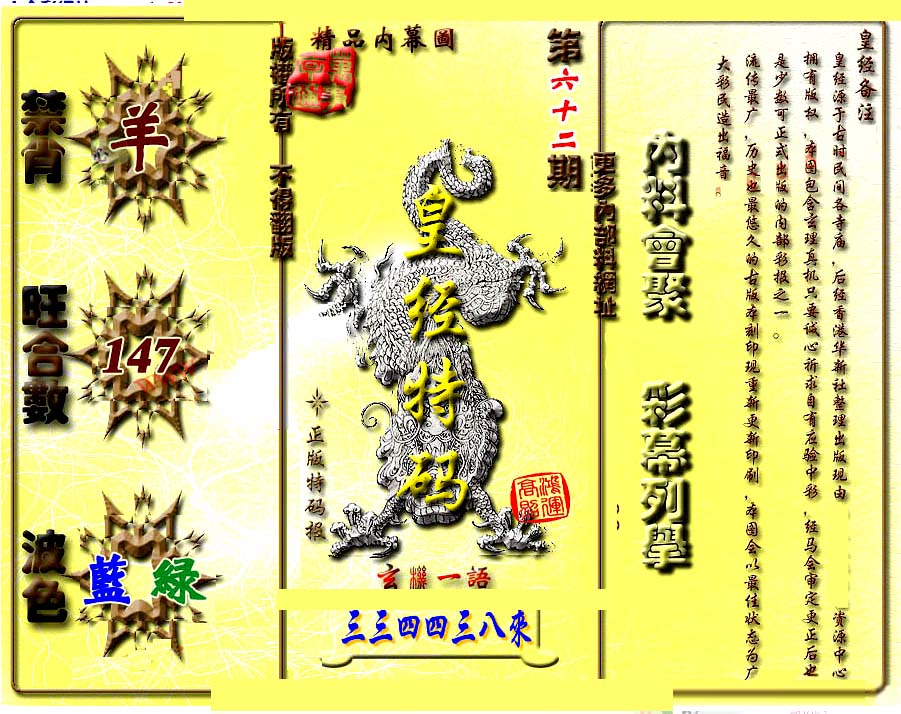 精品内幕圖
第六十二期
版權所有 不得翻版
更多内部料網址
禁肖
羊
旺合數
147
波色
藍 綠
皇经特码
正版特码报
鴻運高照
玄機一語
三三四四三八來
内料會聚 彩幕列舉
皇经备注
皇经源于古时民间各寺庙，后经香港华新社整理出版现由 资源中心
拥有版权，本图包含玄理真机只要诚心祈求自有应验中彩，经马会审定更正后也
是少数可正式出版的内部彩报之一。
流传最广，历史也最悠久的古版本刻印现重新更新印刷，本图会以最佳状态为广
大彩民造出福音